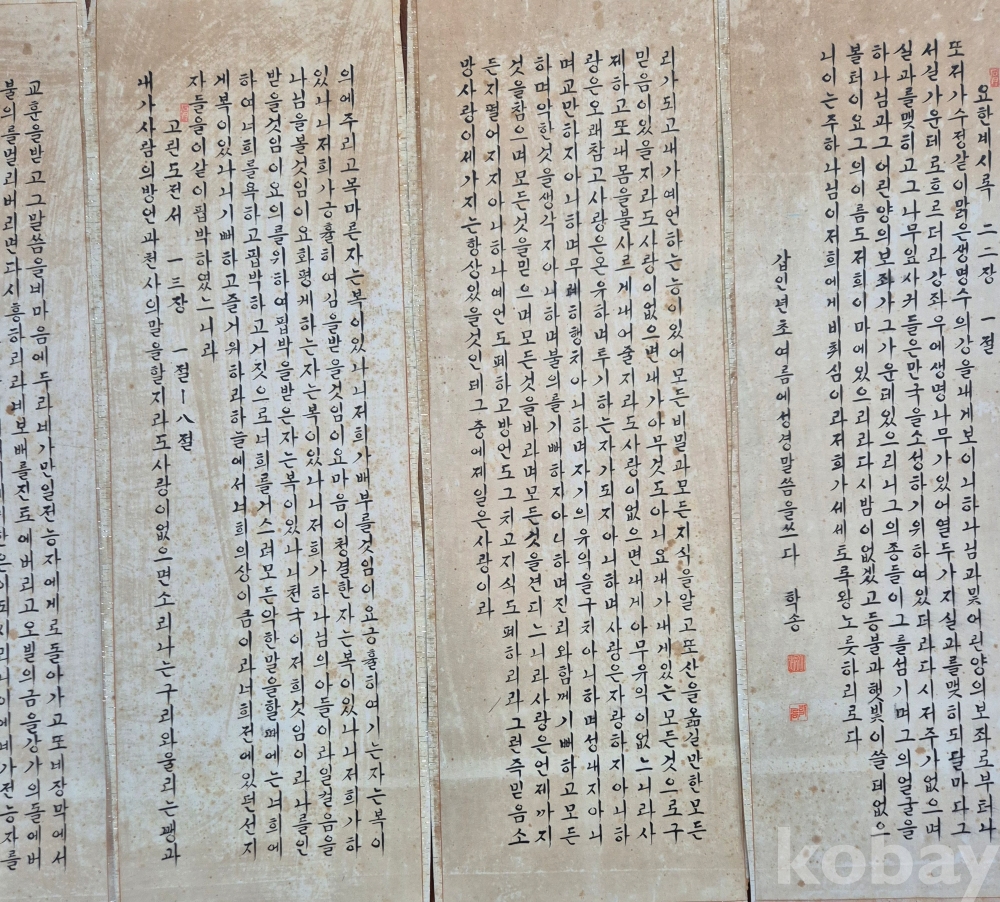 교훈을받고그말씀을네마음에두라네가만일전능자에게로돌아가고또네장막에서
불의를멀리버리면다시흥하리라네보배를진토에버리고오빌의금을강가의돌에버
의에주리고목마른자는복이있나니저희가배부를것임이요긍휼하여기는자는복이
있나니저희가긍휼히여김을받을것임이요마음이청결한자는복이있나니저희가하
나님을볼것임이요화평케하는자는복이있나니저희가하나님의아들이라일걸음을
받을것임이요의를위하여핍박을받은자는복이있나니천국이저희것임이라나를인
하여너희를욕하고핍박하고거짓으로너희를거스려모든악한말을할때에는너희에
게복이있나니기뻐하고즐거워하라하늘에서너희의상이큼이라너희전에있던선지
자들을이같이핍박하였느니라
고린도전서 一三장 一절ㅣ八절
내가사람의방언과천사의말을할지라도사랑이없으면소리나는구리와울리는꽹과
리가되고내가예언하는능이있어모든비밀과모든지식을알고또산을옮길만한모든
믿음이있을지라도사랑이없으면내가아무것도아니요내가내게있는모든것으로구
제하고또내몸을불사르게내어줄지라도사랑이없으면내게아무유익이없느니라사
랑은오래참고사랑은온유하며투기하는자가되지아니하며사랑은자랑하지아니하
며교만하지아니하며무례히행치아니하며자기의유익을구치아니하며성내지아니
하며악한것을생각지아니하며불의를기뻐하지아니하며진리와함께기뻐하고모든
것을참으며모든것을믿으며모든것을바라며모든것을견디느니라사랑은언제까지
든지떨어지지아니하나예언도폐하고방언도그치고지식도폐하리라그런즉믿음소
망사랑이세가지는항상있을것인데그중에제일은사랑이라
요한계시록 二二장 一절
또저가수정같이맑은생명수의강을내게보이니하나님과및어린양의보좌로부터나
서실가운데로흐르더라강좌우에생명나무가있어열두가지실과를맺히되달마다그
실과를맺히고그나무잎사귀들은만국을소성하기위하여있더라다시저주가없으며
하나님과그어린양의보좌가그가운데있으리니그의종들이그를섬기며그의얼굴을
볼터이요그의이름도저희이마에있으리라다시밤이없겠고등불과햇빛이쓸데없으
니이는주하나님이저희에게비취심이라저희가세세토록왕노릇하리로다
갑인년초여름에성경말씀을쓰다 학송
kobay